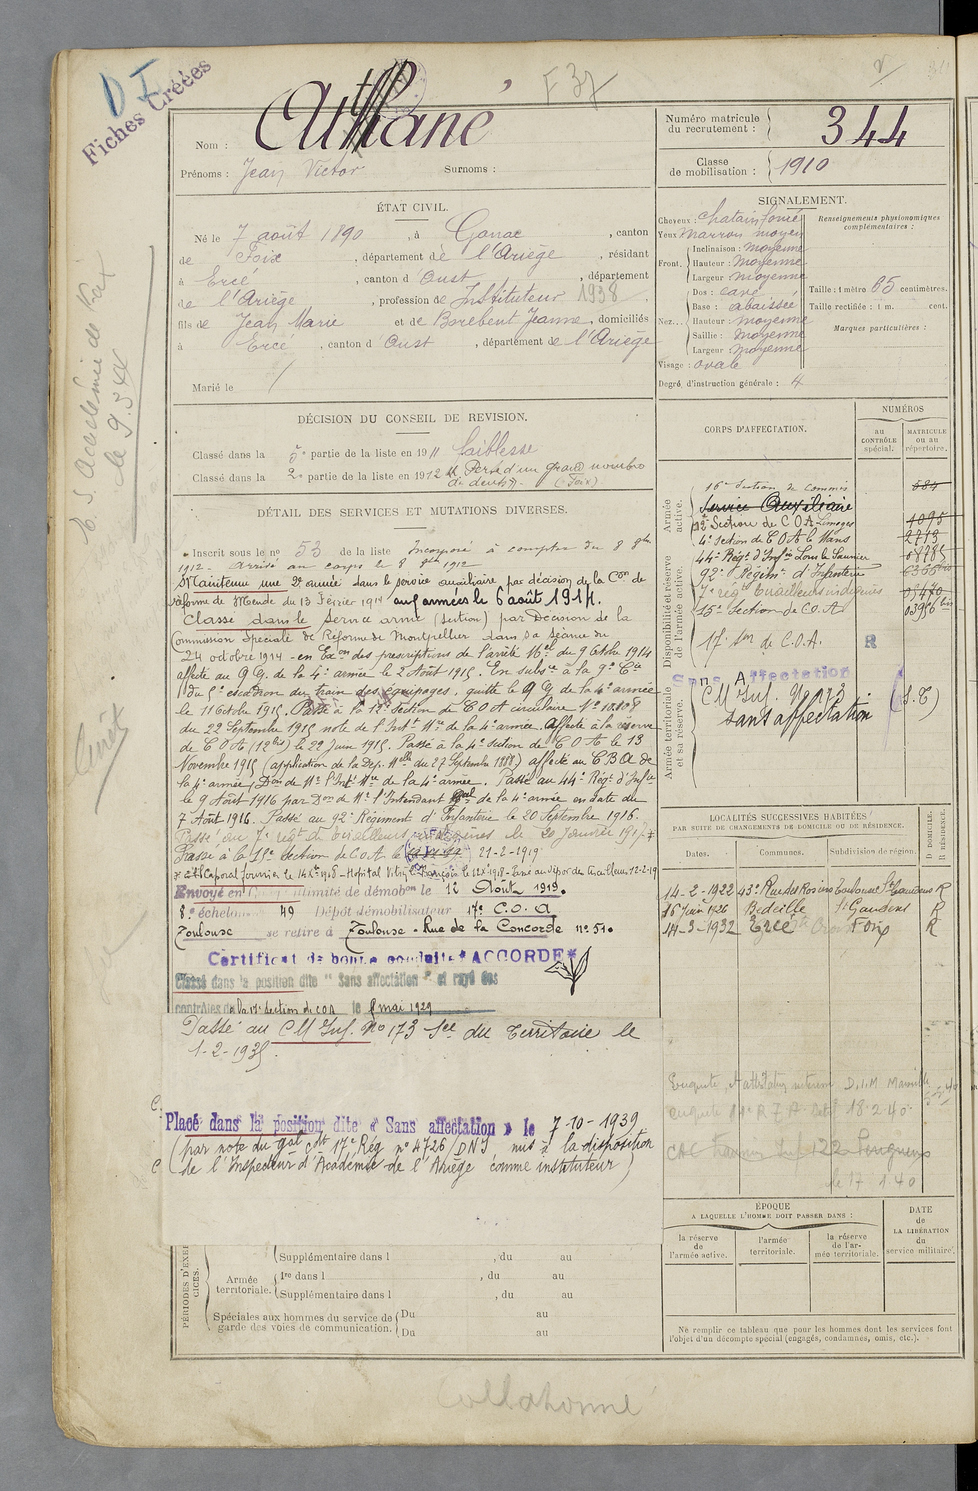 D I
Fiches Créées
F 37
Nom :
Prénoms : Jean Victor Surnoms :
Numéro matricule du recrutement : 344
Classe de mobilisation : 1910
ÉTAT CIVIL.
Né le 7 août 1890, à Ganac, canton
de Foix, département de l'Ariège, résidant
à Ercé, canton d'Oust, département
de l'Ariège, profession de Instituteur 1938
fils de Jean Marie et de Barebent Jeanne, domiciliés
à Ercé, canton d'Oust, département de l'Ariège
Marié le
SIGNALEMENT.
Cheveux : Chatain foncé
Yeux marron moyen
Front. Inclinaison : moyenne
Hauteur : moyenne
Largeur moyenne
Nez... Dos : cavé
Base : abaissée
Hauteur moyenne
Saillie : moyenne
Largeur moyenne
Visage : ovale
Degré d'instruction générale : 4
Renseignements physionomiques complémentaires :
Taille : 1 mètre 65 centimètres.
Taille rectifiée : 1 m. cent.
Marques particulières :
DÉCISION DU CONSEIL DE REVISION.
Classé dans la 5e partie de la liste en 1911 faiblesse
Classé dans la 2e partie de la liste en 1912 Perte d'un grand nombre
de dents (Foix)
DÉTAIL DES SERVICES ET MUTATIONS DIVERSES.
Inscrit sous le no 53 de la liste Incorporé à compter du 8 8bre
1912. Arrivé au corps le 8 8bre 1912
Maintenu une 2e année dans le service auxiliaire par décision de la Con de
réforme de Mende du 13 Février 1914 aux armées le 6 août 1914.
Classé dans le Service armé (section) par Décision de la
Commission Spéciale de Réforme de Montpellier dans sa séance du
24 octobre 1914 - en Exon des prescriptions de l'arrêté Mel du 9 Octobre 1914
affecté au Q G. de la 4e armée le 2 Août 1915. En subsce à la 9e Cie
du 5e escadron du train des équipages, quitte le Q G de la 4e armée
le 11 Octobre 1915. Passé à la 12e Section de C O A circulaire No 10.108
du 22 Septembre 1915 note de l'Intt Mre de la 4e armée. Affecté à la réserve
de C O A (12bis) le 22 Juin 1915. Passé à la 4e Section de C O A le 13
Novembre 1915 (application de la Dep. Melle du 27 Septembre 1888) affecté au C B A de
la 4e armée, Don de Mr l'Intt Mre de la 4e armée. Passé au 44e Régt d'Infie
le 9 Août 1916 par Don de Mr l'Intendant Gal de la 4e armée en date du
7 Août 1916. Passé au 92e Régiment d'Infanterie le 20 Septembre 1916.
Passé au 7e régt de tirailleurs indigènes le 20 Janvier
Passé à la 15e Section de C.O.A. le 21-2-1919
Caporal fourrier
Envoyé en le 12 Août 1919.
8e échelon 49 Dépôt démobilisateur 17e C. O. A
Toulouse se retire à Toulouse - Rue de la Concorde no 51.
Certificat de bonne conduite "ACCORDE"
Classé dans la position dite "Sans affectation" et rayé des
contrôles de la 17e Section de COA le 8 mai 1929
Passé au C M Inf. No 173 See du Territoire le
1-2-1935.
Placé dans la position dite « Sans affectation » le 7-10-1939
(par note du Gal Cdt 17e Rég no 4726/DN1 mis à la disposition
de l'Inspecteur d'Académie de l'Ariège comme instituteur)
CORPS D'AFFECTATION.
NUMÉROS
AU CONTRÔLE SPÉCIAL.
MATRICULE OU AU RÉPERTOIRE.
Armée active.
16e Section de Commis 684
Service Auxiliaire
12e Section de C O A Limoges 1095
4e Section de C O A le Mans 2713
Disponibilité et réserve de l'armée active.
44e Régt d'Infie Lons le Saunier
92e Régimt d'Infanterie
7e régt Tirailleurs indigènes 05470
15e Section de C.O.A.
17e Son de C.O.A. R
Sans Affectation
Armée territoriale et sa réserve.
C M Inf. No 173 (S.T)
sans affectation
LOCALITÉS SUCCESSIVES HABITÉES
PAR SUITE DE CHANGEMENTS DE DOMICILE OU DE RÉSIDENCE.
Dates. Communes. Subdivision de région. D DOMICILE. R RÉSIDENCE.
14-2-1922 43e Rue des Rosiers Toulouse St Gaudens R
16 Juin 1926 Bedeille St Gaudens R
14-3-1932 Ercé Foix R
18-2-40
le 17 1.40
ÉPOQUE
A LAQUELLE L'HOMME DOIT PASSER DANS :
la réserve de l'armée active.
l'armée territoriale.
la réserve de l'armée territoriale.
DATE de LA LIBÉRATION du service militaire.
PÉRIODES D'EXERCICES.
Supplémentaire dans l , du au
Armée territoriale. 1re dans l , du au
Supplémentaire dans l , du au
Spéciales aux hommes du service de garde des voies de communication. Du au
Du au
Ne remplir ce tableau que pour les hommes dont les services font
l'objet d'un décompte spécial (engagés, condamnés, omis, etc.).
Collationné